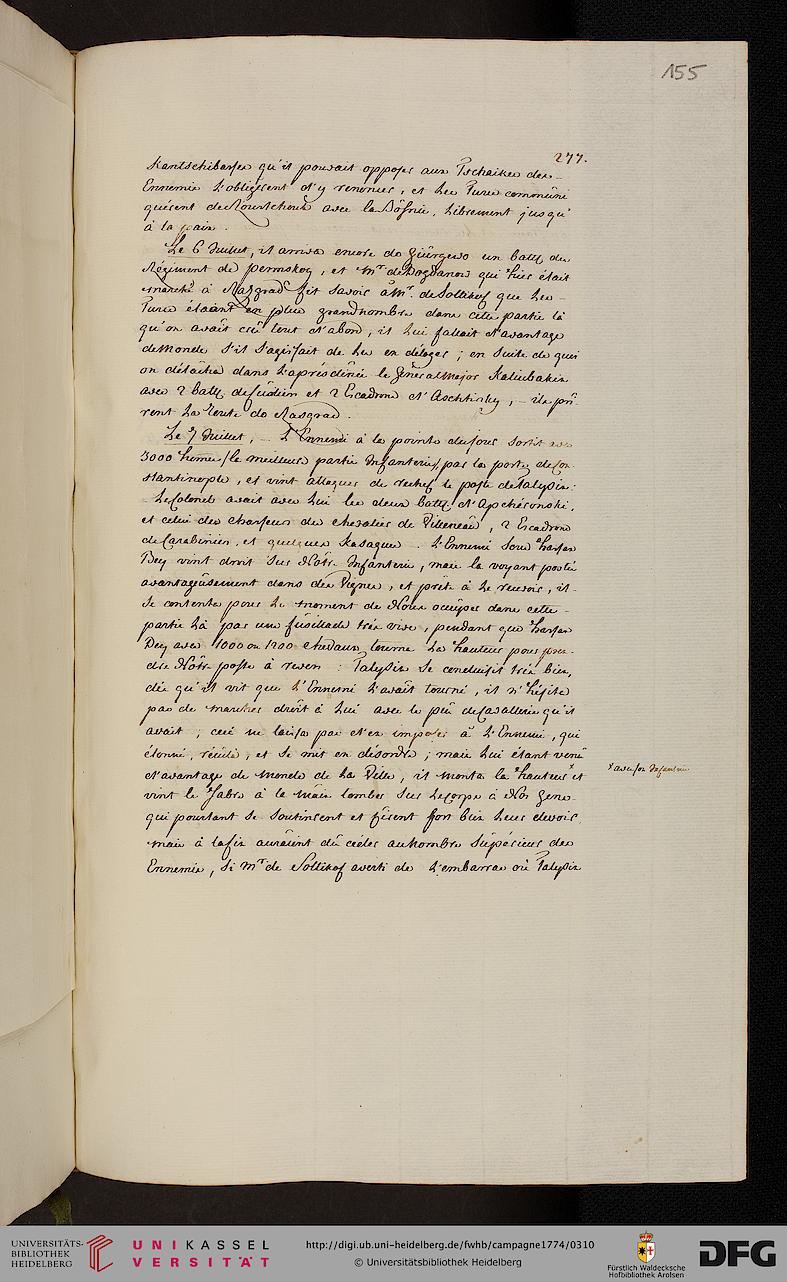 155
277.
Kantschibasse qu'il pouvait opposer aux Tschaiken des
Ennemis l'obligèrent d'y renoncer, et les Turcs comoniqui
quérent de Rourtchouk avec la Bosnie, librement jusqu'
à la paix.
Le 6 Juillet, il arriva encore de Giürgewo un batt: du
Régiment de permskoy, et Mr de Bogdanow qui hier était
marché à Rasgrad fit savoir à Mr. de Soltikof que les
Turcs étaint en plus grand nombre dans cette partie là
qu'on avait crû tout d'abord, il lui fallait d'avantage
de Monde s'il s'agissait de les en déloger; en suite de quoi
on détâcha dans l'aprèsdinée le Géneralmajor
avec 2 batt: de et 2 Escadrons d' , ils pri-
rent la route de Rasgrad.
Le 7 Juillet, L'Ennemi à la pointe du jour sortit avec
3000 home /: la meilleure partie Infanterie :/ par la porte de Con-
stantinople, et vint attaquer de rechef le poste de Talysin:
Le Colonel avait avec lui les deux batt: d'Apchéronski,
et celui des chasseurs du chevalier de , 2 Escadrons
de Carabiniers, et quelques Kasaques. L'Ennemi sous Hassan
Bey vint droit sur Nôtre Infanterie, mais la voyant postée
avantageusement dans des Vignes, et prête à le recevoir, il
se contenta pour le moment de Nous occuper dans cette
partie là par une fusillade très vive, pendant que Hassan
Bey avec 1000 ou 1200 chevaux tourna la hauteur pour pren-
dre Nôtre poste à revers: Talysin se conduisit très bien,
dès qu'il vit que l'Ennemi l'avait tourné, il n'hésita
pas de marcher droit à lui avec le peu de Cavallerie qu'il
avait; ceci ne laissa pas d'en imposer à l'Ennemi, qui
étonné, récula, et se mit en désordre; mais lui étant venû
d'avantage de Monde de la Ville, il monta la hauteur x et
vint le Sabre à la Main tomber sur le Corps à Nos gens
qui pourtant se soutinrent et firent fort bien leur devoir,
mais à la fin auraient dû céder au Nombre supérieur des
Ennemis, si Mr de Soltikof averti de l'embarras où Talysin
x avec son Infanterie
UNIVERSITÄTS-
BIBLIOTHEK
HEIDELBERG
UNI KASSEL
VERSITÄT
http://digi.ub.uni-heidelberg.de/fwhb/campagne1774/0310
© Universitätsbibliothek Heidelberg
Fürstlich Waldecksche
Hofbibliothek Arolsen
DFG